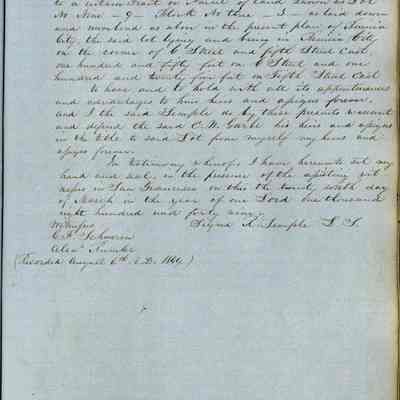 to a certain Tract or Parcel of Land known as Lot
No Nine — 9 — Block No three — 3 — as laid down
and numbered as above in the present plan of Benicia
City, the said lot lying and being in Benicia City
on the corner of C Street and fifth Street East,
one hundred and fifty feet on C Street and one
hundred and twenty five feet on Fifth Street East
To have and to hold with all its appurtenances
and advantages to him his heirs and assigns forever,
and I the said Semple do by these presents warrant
and defend the said C. W. his heirs and assigns
in the title to said Lot from myself my heirs and
assigns forever.
In testimony whereof I have hereunto set my
hand and seal, in the presence of the
in San Francisco on this the twenty sixth day
of March in the year of our Lord one thousand
eight hundred and forty nine.
Witness Signed R. Semple L. S.
C. F.
Alexr
(Recorded August 6th A.D. 1860)